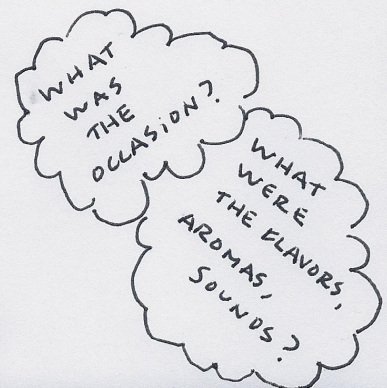 WHAT
WAS
THE
OCCASION?
WHAT
WERE
THE FLAVORS,
AROMAS,
SOUNDS?